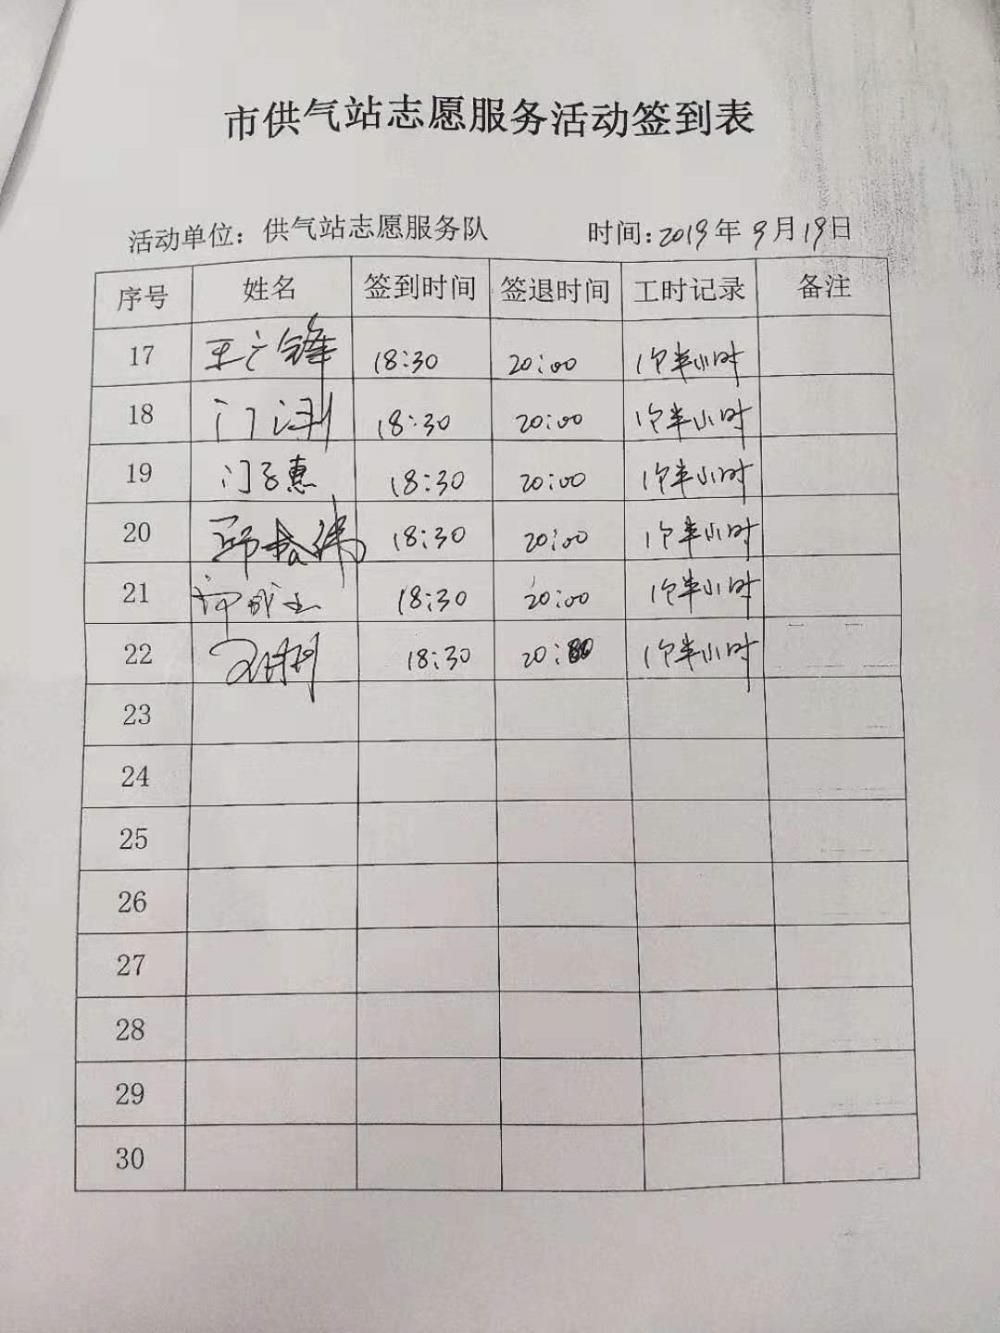 市供气站志愿服务活动签到表
活动单位：供气站志愿服务队 时间：2019年9月19日
序号 姓名 签到时间 签退时间 工时记录 备注
17 王广锋 18:30 20:00 1个半小时
18 门 18:30 20:00 1个半小时
19 门子惠 18:30 20:00 1个半小时
20 18:30 20:00 1个半小时
21 18:30 20:00 1个半小时
22 18:30 20:00 1个半小时
23
24
25
26
27
28
29
30